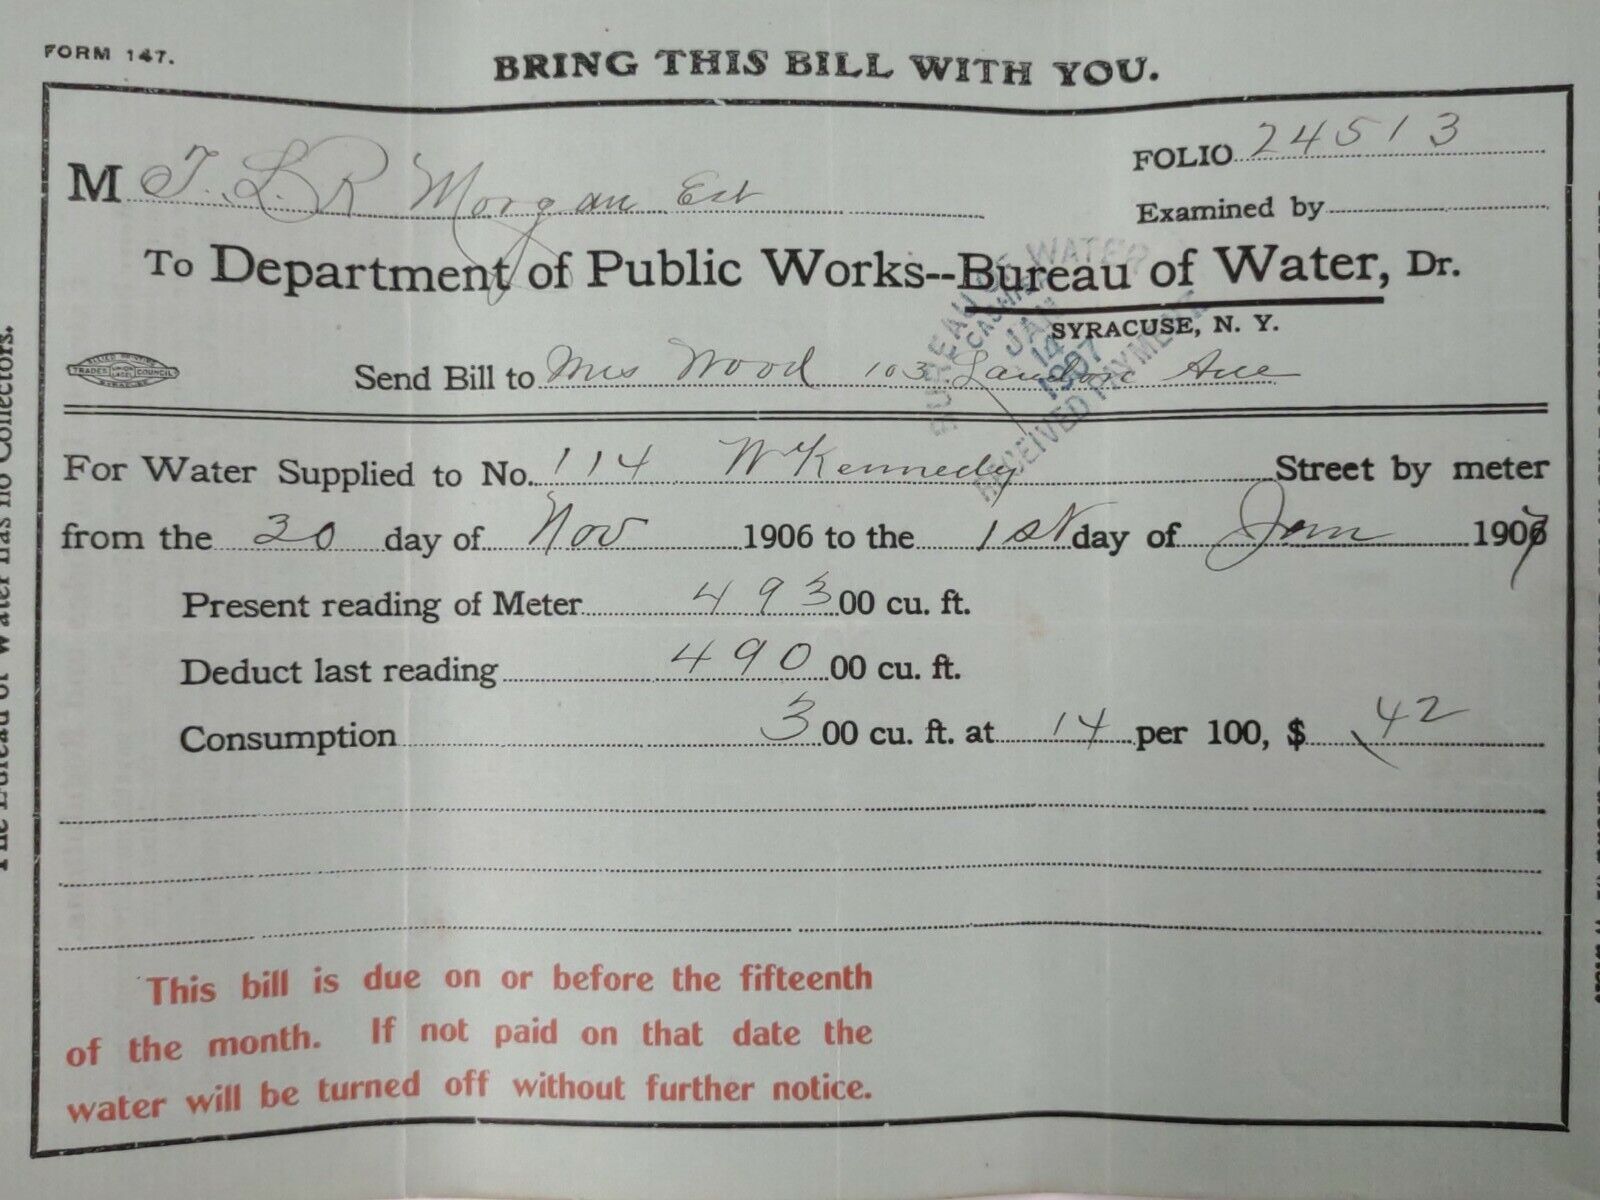 FORM 147.
BRING THIS BILL WITH YOU.
FOLIO 24513
M T. L. R Morgan Est
Examined by
To Department of Public Works--Bureau of Water, Dr.
SYRACUSE, N. Y.
BUREAU OF WATER
CASHIER
JAN
14
1907
RECEIVED PAYMENT
ALLIED PRINTING
TRADES UNION LABEL COUNCIL
SYRACUSE
Send Bill to Mrs Wood 103 Landon Ave
For Water Supplied to No. 114 W Kennedy Street by meter
from the 30 day of Nov 1906 to the 1st day of Jan 1907
Present reading of Meter 493 00 cu. ft.
Deduct last reading 490 00 cu. ft.
Consumption 3 00 cu. ft. at 14 per 100, $ .42
This bill is due on or before the fifteenth
of the month. If not paid on that date the
water will be turned off without further notice.
The Bureau of Water has no Collectors.